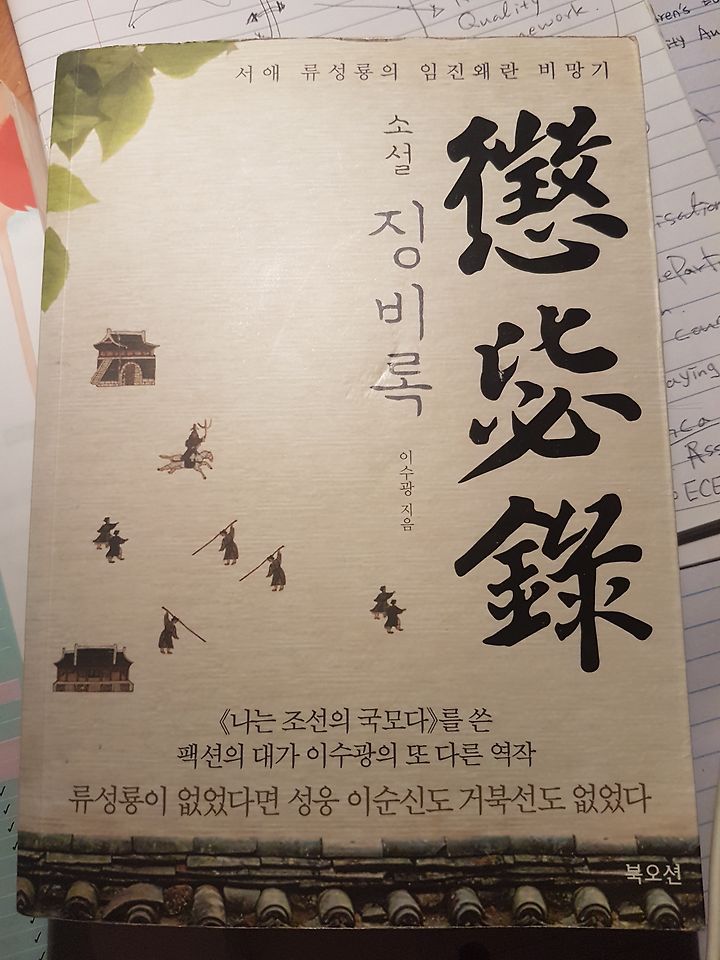 서애 류성룡의 임진왜란 비망기
懲毖錄
소설
징비록
이수광 지음
《나는 조선의 국모다》를 쓴
팩션의 대가 이수광의 또 다른 역작
류성룡이 없었다면 성웅 이순신도 거북선도 없었다
북오션
Quality